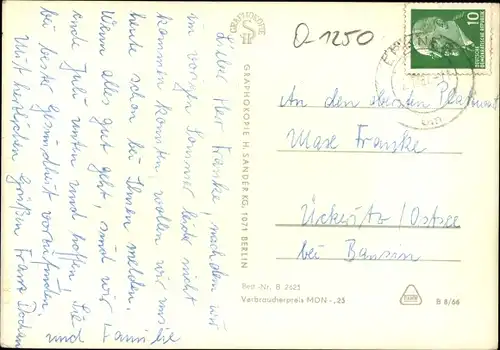 Lieber Herr Franke, nachdem wir
im vorigen Sommer leider nicht
kommen konnten, wollen wir uns
heute schon bei Ihnen melden.
Wenn alles gut geht, sind wir
Ende Juli unten und hoffen, Sie
bei bester Gesundheit vorzufinden.
Mit herzlichen Grüßen Frans
und Familie
GRAPHOKOPIE
GRAPHOKOPIE H. SANDER KG, 1071 BERLIN
Best.-Nr. B 2625
Verbraucherpreis MDN -,25
Q 1250
10
DEUTSCHE
DEMOKRATISCHE REPUBLIK
An den obersten Platzwart
Maxe Franke
Ückeritz/Ostsee
bei Bansin
B 8/66